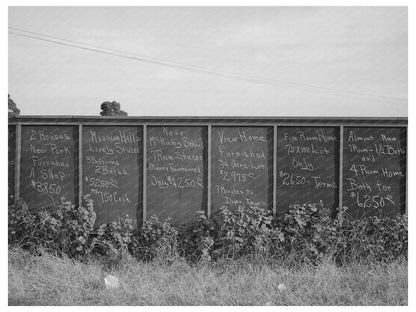 2 Houses
Near Park
Furnished
A Snap
$3850
Mission Hills
Lovely Stucco
3 Bedrooms
2 Baths
5250
150 Cash
Near
McKinley School
7 Room Stucco
Owner Transferred
Only $4250
View Home
Furnished
3/4 Acre Lot
$2975
7 Minutes to
Down Town
Five Room Home
75x150 Lot
Only
2650 - Terms
Almost New
7 Room - 2 Bath
and
4 Room
Both For
$6250